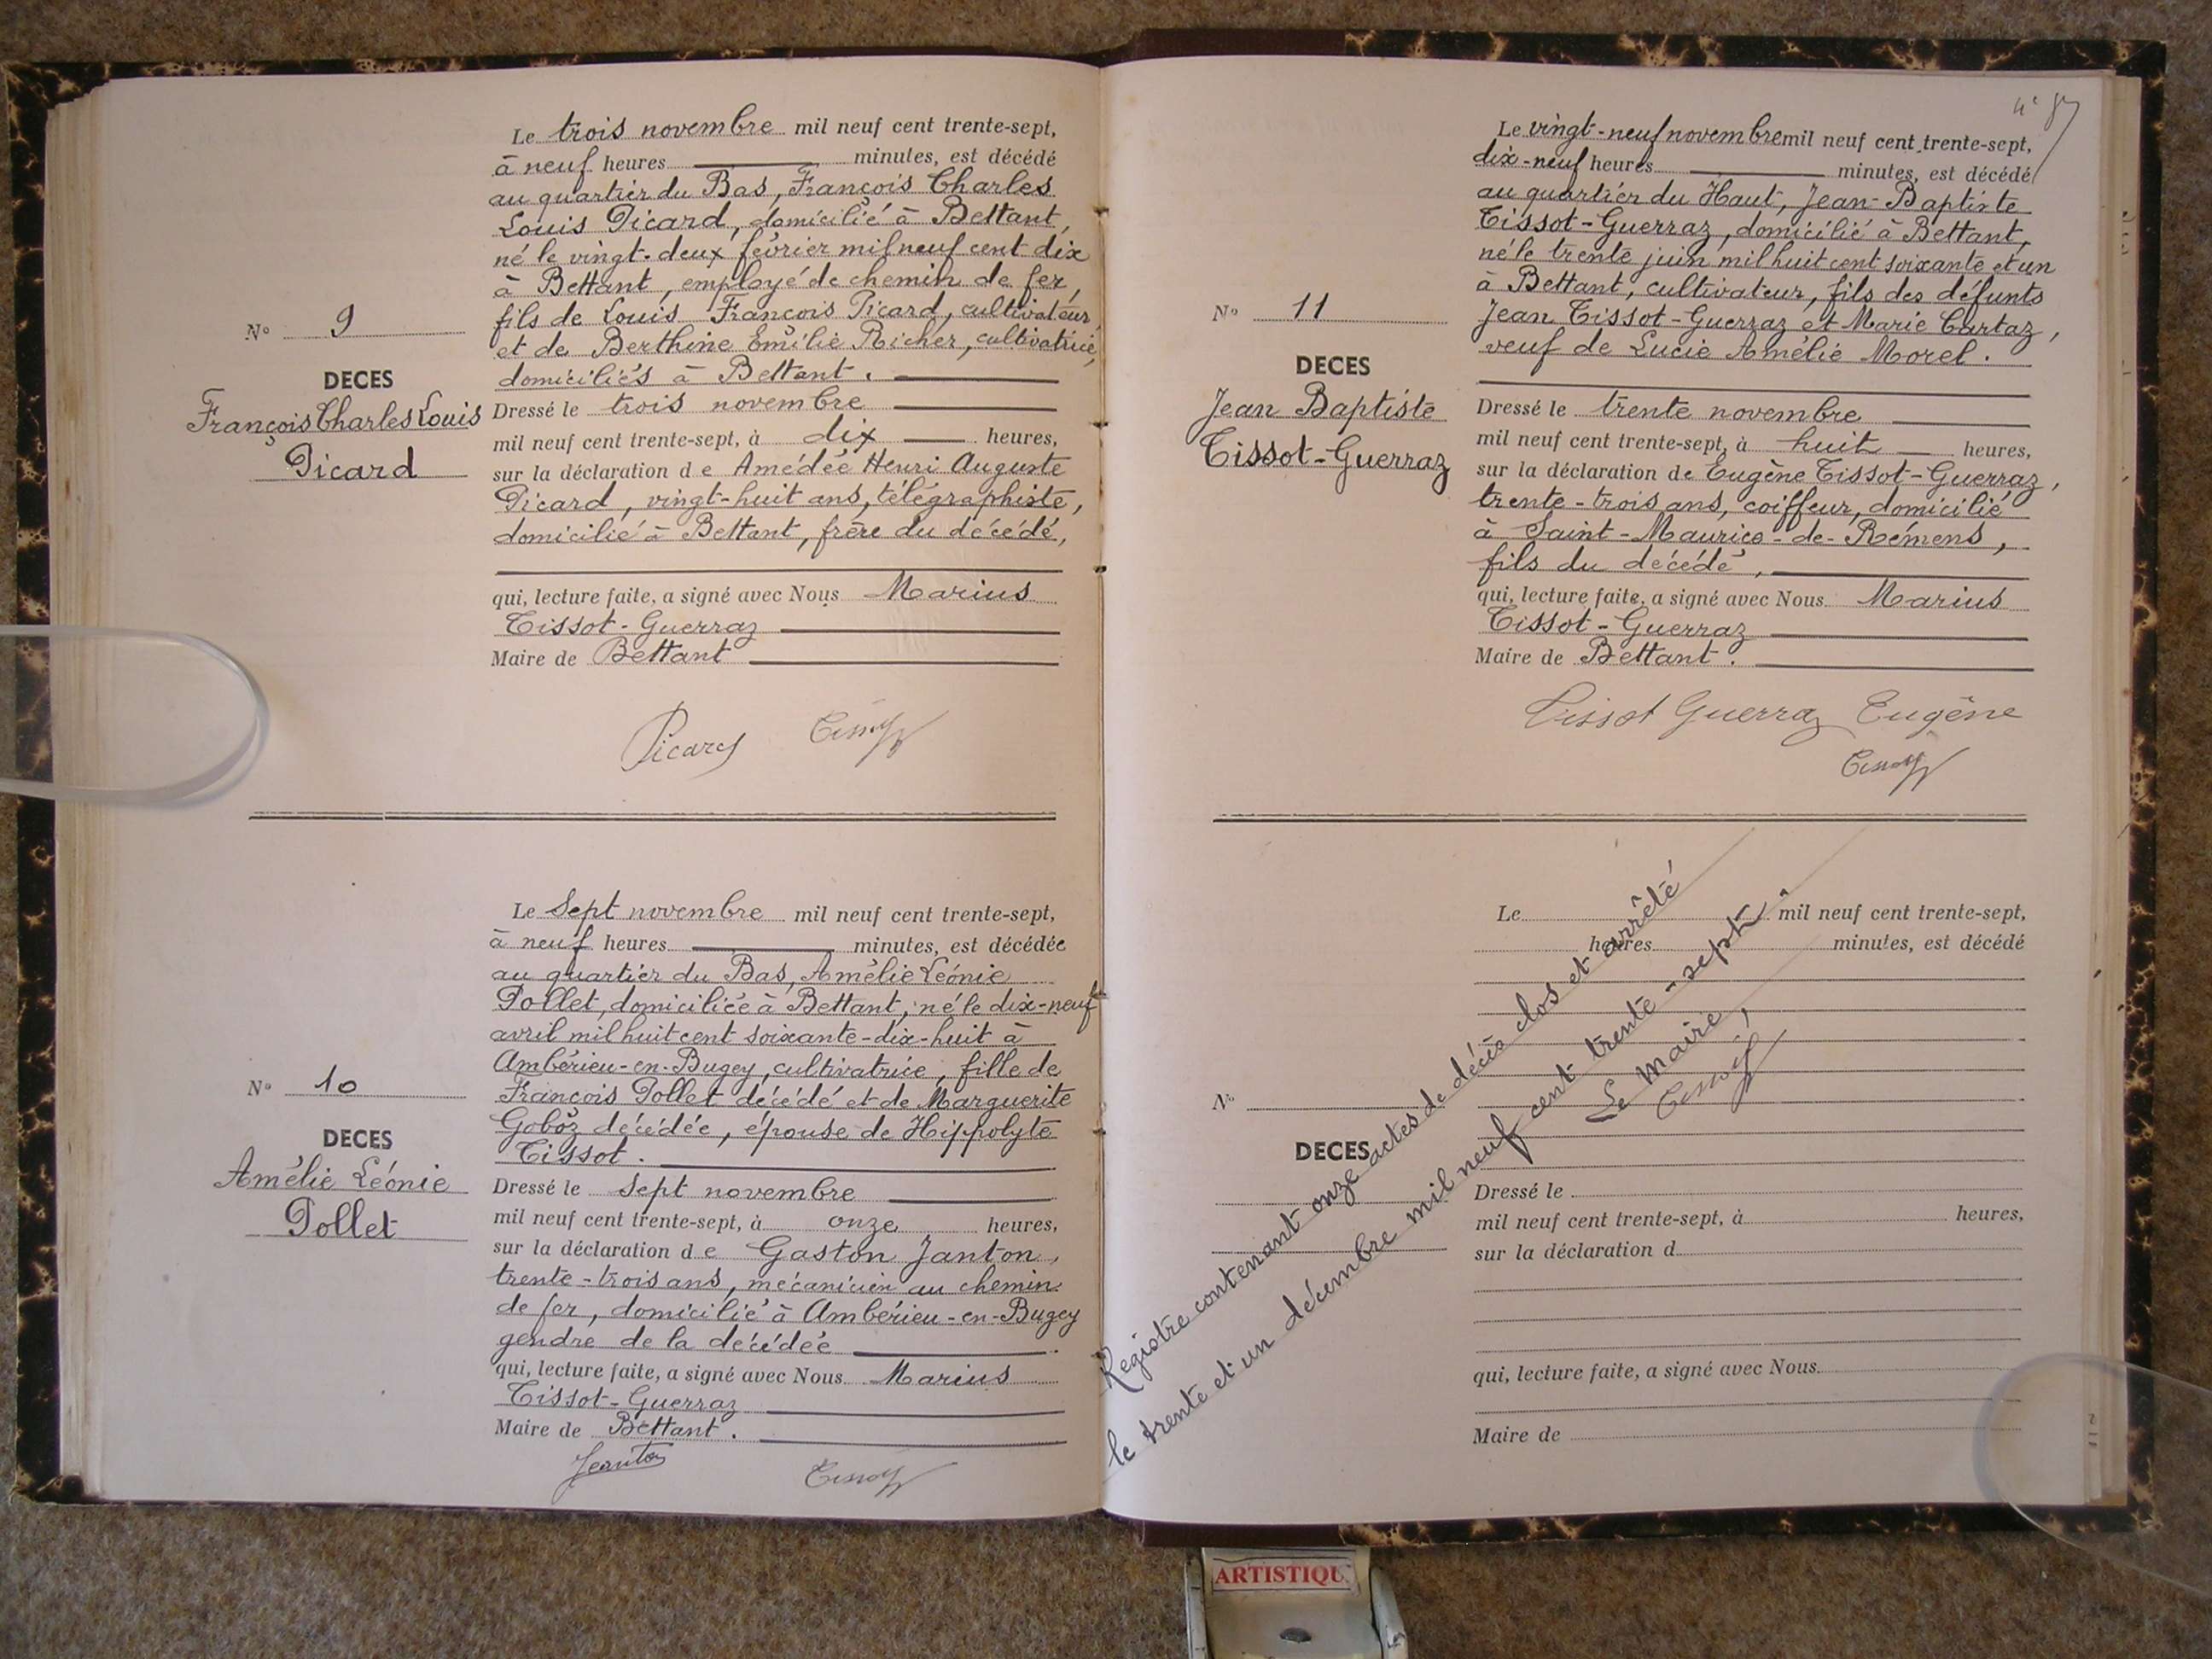 Le trois novembre mil neuf cent trente-sept,
à neuf heures minutes, est décédé
au quartier du Bas, François Charles
Louis Picard, domicilié à Bettant,
né le vingt-deux février mil neuf cent dix
à Bettant, employé de chemin de fer,
fils de Louis François Picard, cultivateur
et de Berthine Emilie Richer, cultivatrice,
domiciliés à Bettant.
No 9
DECES
François Charles Louis
Picard
Dressé le trois novembre
mil neuf cent trente-sept, à dix heures,
sur la déclaration de Amédée Henri Auguste
Picard, vingt-huit ans, télégraphiste,
domicilié à Bettant, frère du décédé,
qui, lecture faite, a signé avec Nous Marius
Tissot-Guerraz
Maire de Bettant
Picard
Le Sept novembre mil neuf cent trente-sept,
à neuf heures minutes, est décédée
au quartier du Bas, Amélie Léonie
Pollet, domiciliée à Bettant, né le dix-neuf
avril mil huit cent soixante-dix-huit à
Ambérieu-en-Bugey, cultivatrice, fille de
François Pollet décédé et de Marguerite
Goboz décédée, épouse de Hippolyte
Tissot.
No 10
DECES
Amélie Léonie
Pollet
Dressé le Sept novembre
mil neuf cent trente-sept, à onze heures,
sur la déclaration de Gaston Janton,
trente-trois ans, mécanicien au chemin
de fer, domicilié à Ambérieu-en-Bugey
gendre de la décédée
qui, lecture faite, a signé avec Nous Marius
Tissot-Guerraz
Maire de Bettant.
Le vingt-neuf novembre mil neuf cent trente-sept,
dix-neuf heures minutes, est décédé
au quartier du Haut, Jean-Baptiste
Tissot-Guerraz, domicilié à Bettant,
né le trente juin mil huit cent soixante et un
à Bettant, cultivateur, fils des défunts
Jean Tissot-Guerraz et Marie Cartaz,
veuf de Lucie Amélie Morel.
No 11
DECES
Jean Baptiste
Tissot-Guerraz
Dressé le trente novembre
mil neuf cent trente-sept, à huit heures,
sur la déclaration de Eugène Tissot-Guerraz,
trente-trois ans, coiffeur, domicilié
à Saint-Maurice-de-Rémens,
fils du décédé,
qui, lecture faite, a signé avec Nous Marius
Tissot-Guerraz
Maire de Bettant.
Tissot Guerraz Eugène
Le mil neuf cent trente-sept,
heures minutes, est décédé
No
DECES
Dressé le
mil neuf cent trente-sept, à heures,
sur la déclaration d
qui, lecture faite, a signé avec Nous
Maire de
Registre contenant onze actes de décès clos et arrêté
le trente et un décembre mil neuf cent trente-sept.
Le Maire,
ARTISTIQU